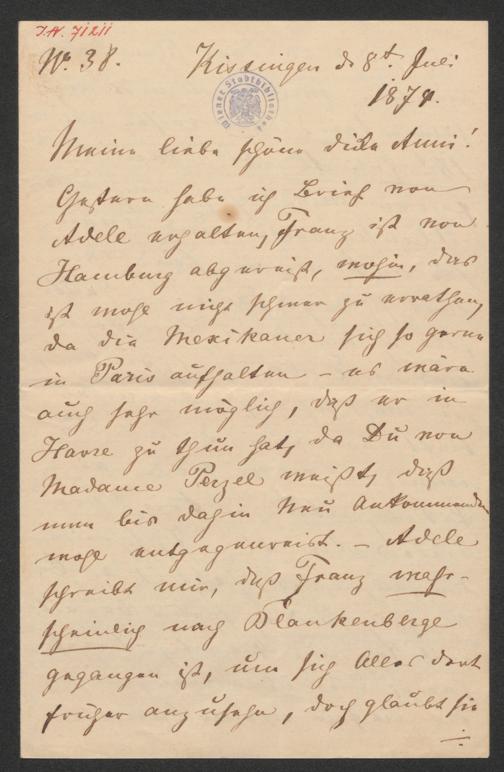 J.N. 71211
No. 38. Kissingen d. 8t. Juli
1874.
Wiener Stadtbibliothek
Meine liebe schöne dicke Anni!
Gestern habe ich Brief von
Adele erhalten, Franz ist von
Hamburg abgereist, wohin, das
ist wohl nicht schwer zu errathen,
da die Mexikaner sich so gerne
in Paris aufhalten – es wäre
auch sehr möglich, daß er in
Havre zu thun hat, da Du von
Madame Perzel weißt, daß
man bis dahin neu Ankommenden
wohl entgegenreist. – Adele
schreibt mir, daß Franz wahr-
scheinlich nach Blankenberge
gegangen ist, um sich Alles dort
früher anzusehn, doch glaubt sie